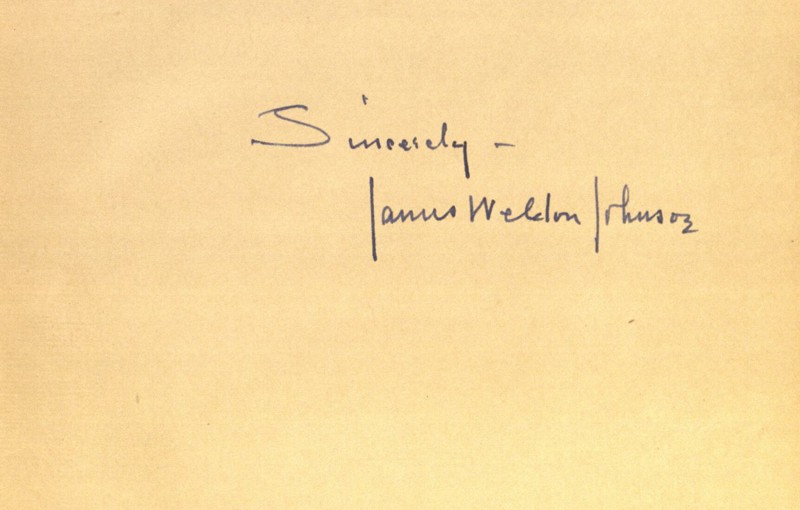 Sincerely -
James Weldon Johnson